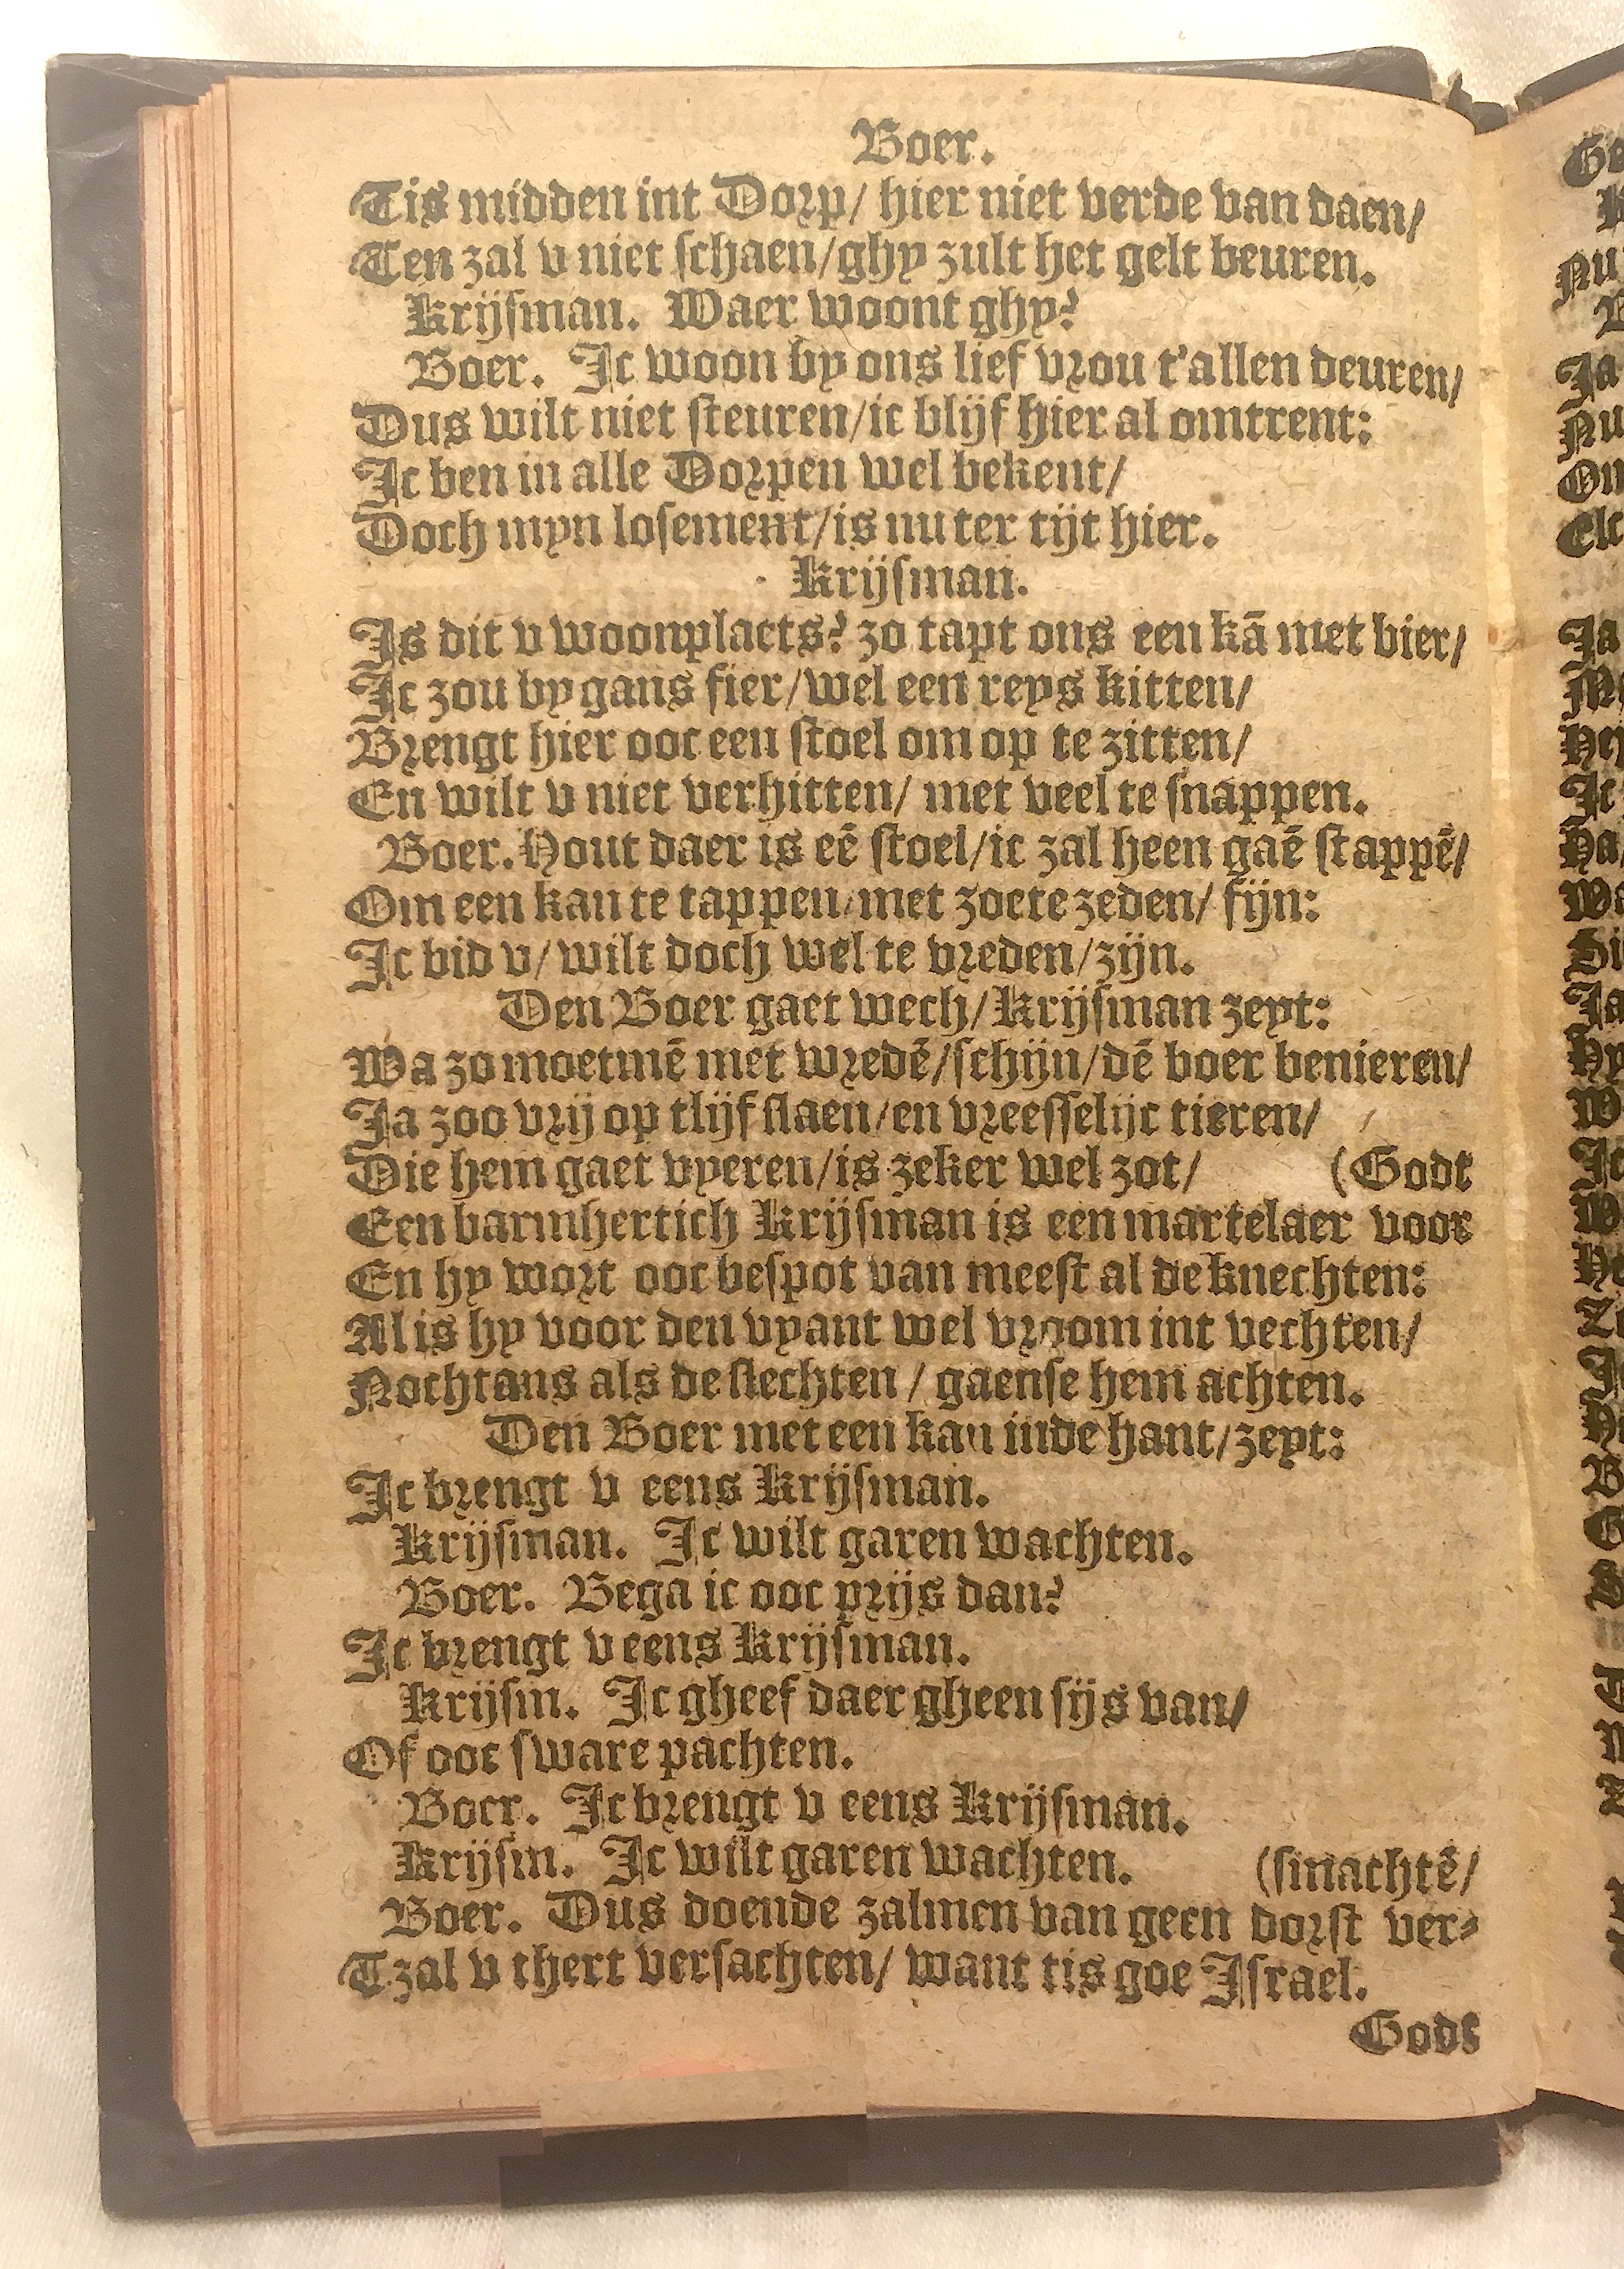 Boer.
Tis midden int Dorp/ hier niet verde van daen/
Ten zal v niet schaen/ghy zult het gelt beuren.
Krijsman. Waer woont ghy?
Boer. Ic woon by ons lief vrou t'allen deuren/
Dus wilt niet steuren/ic blijf hier al omtrent:
Ic ben in alle Dorpen wel bekent/
Doch myn losement/is nu ter tijt hier.
Krijsman.
Is dit v woonplaets? zo tapt ons een kā met bier/
Ic zou by gans fier/wel een reys kitten/
Brengt hier ooc een stoel om op te zitten/
En wilt v niet verhitten/ met veel te snappen.
Boer. Hout daer is eē stoel/ic zal heen gaē stappē/
Om een kan te tappen/met zoete zeden/ fijn:
Ic bid v/ wilt doch wel te vreden/zijn.
Den Boer gaet wech/Krijsman zeyt:
Wa zo moetmē met wredē/schijn/dē boer benieren/
Ja zoo vrij op tlijf slaen/en vreesselijc tieren/
Die hem gaet vyeren/is zeker wel zot/ (Godt
Een barmhertich Krijsman is een martelaer voor
En hy wort ooc bespot van meest al de knechten:
Al is hy voor den vyant wel vroom int vechten/
Nochtans als de slechten / gaense hem achten.
Den Boer met een kan inde hant/zeyt:
Ic brengt v eens Krijsman.
Krijsman. Ic wilt garen wachten.
Boer. Bega ic ooc prijs dan?
Ic brengt v eens Krijsman.
Krijsm. Ic gheef daer gheen sijs van/
Of ooc sware pachten.
Boer. Ic brengt v eens Krijsman.
Krijsm. Ic wilt garen wachten. (smachtē/
Boer. Dus doende zalmen van geen dorst ver-
Tzal v thert versachten/ want tis goe Israel.
Gods